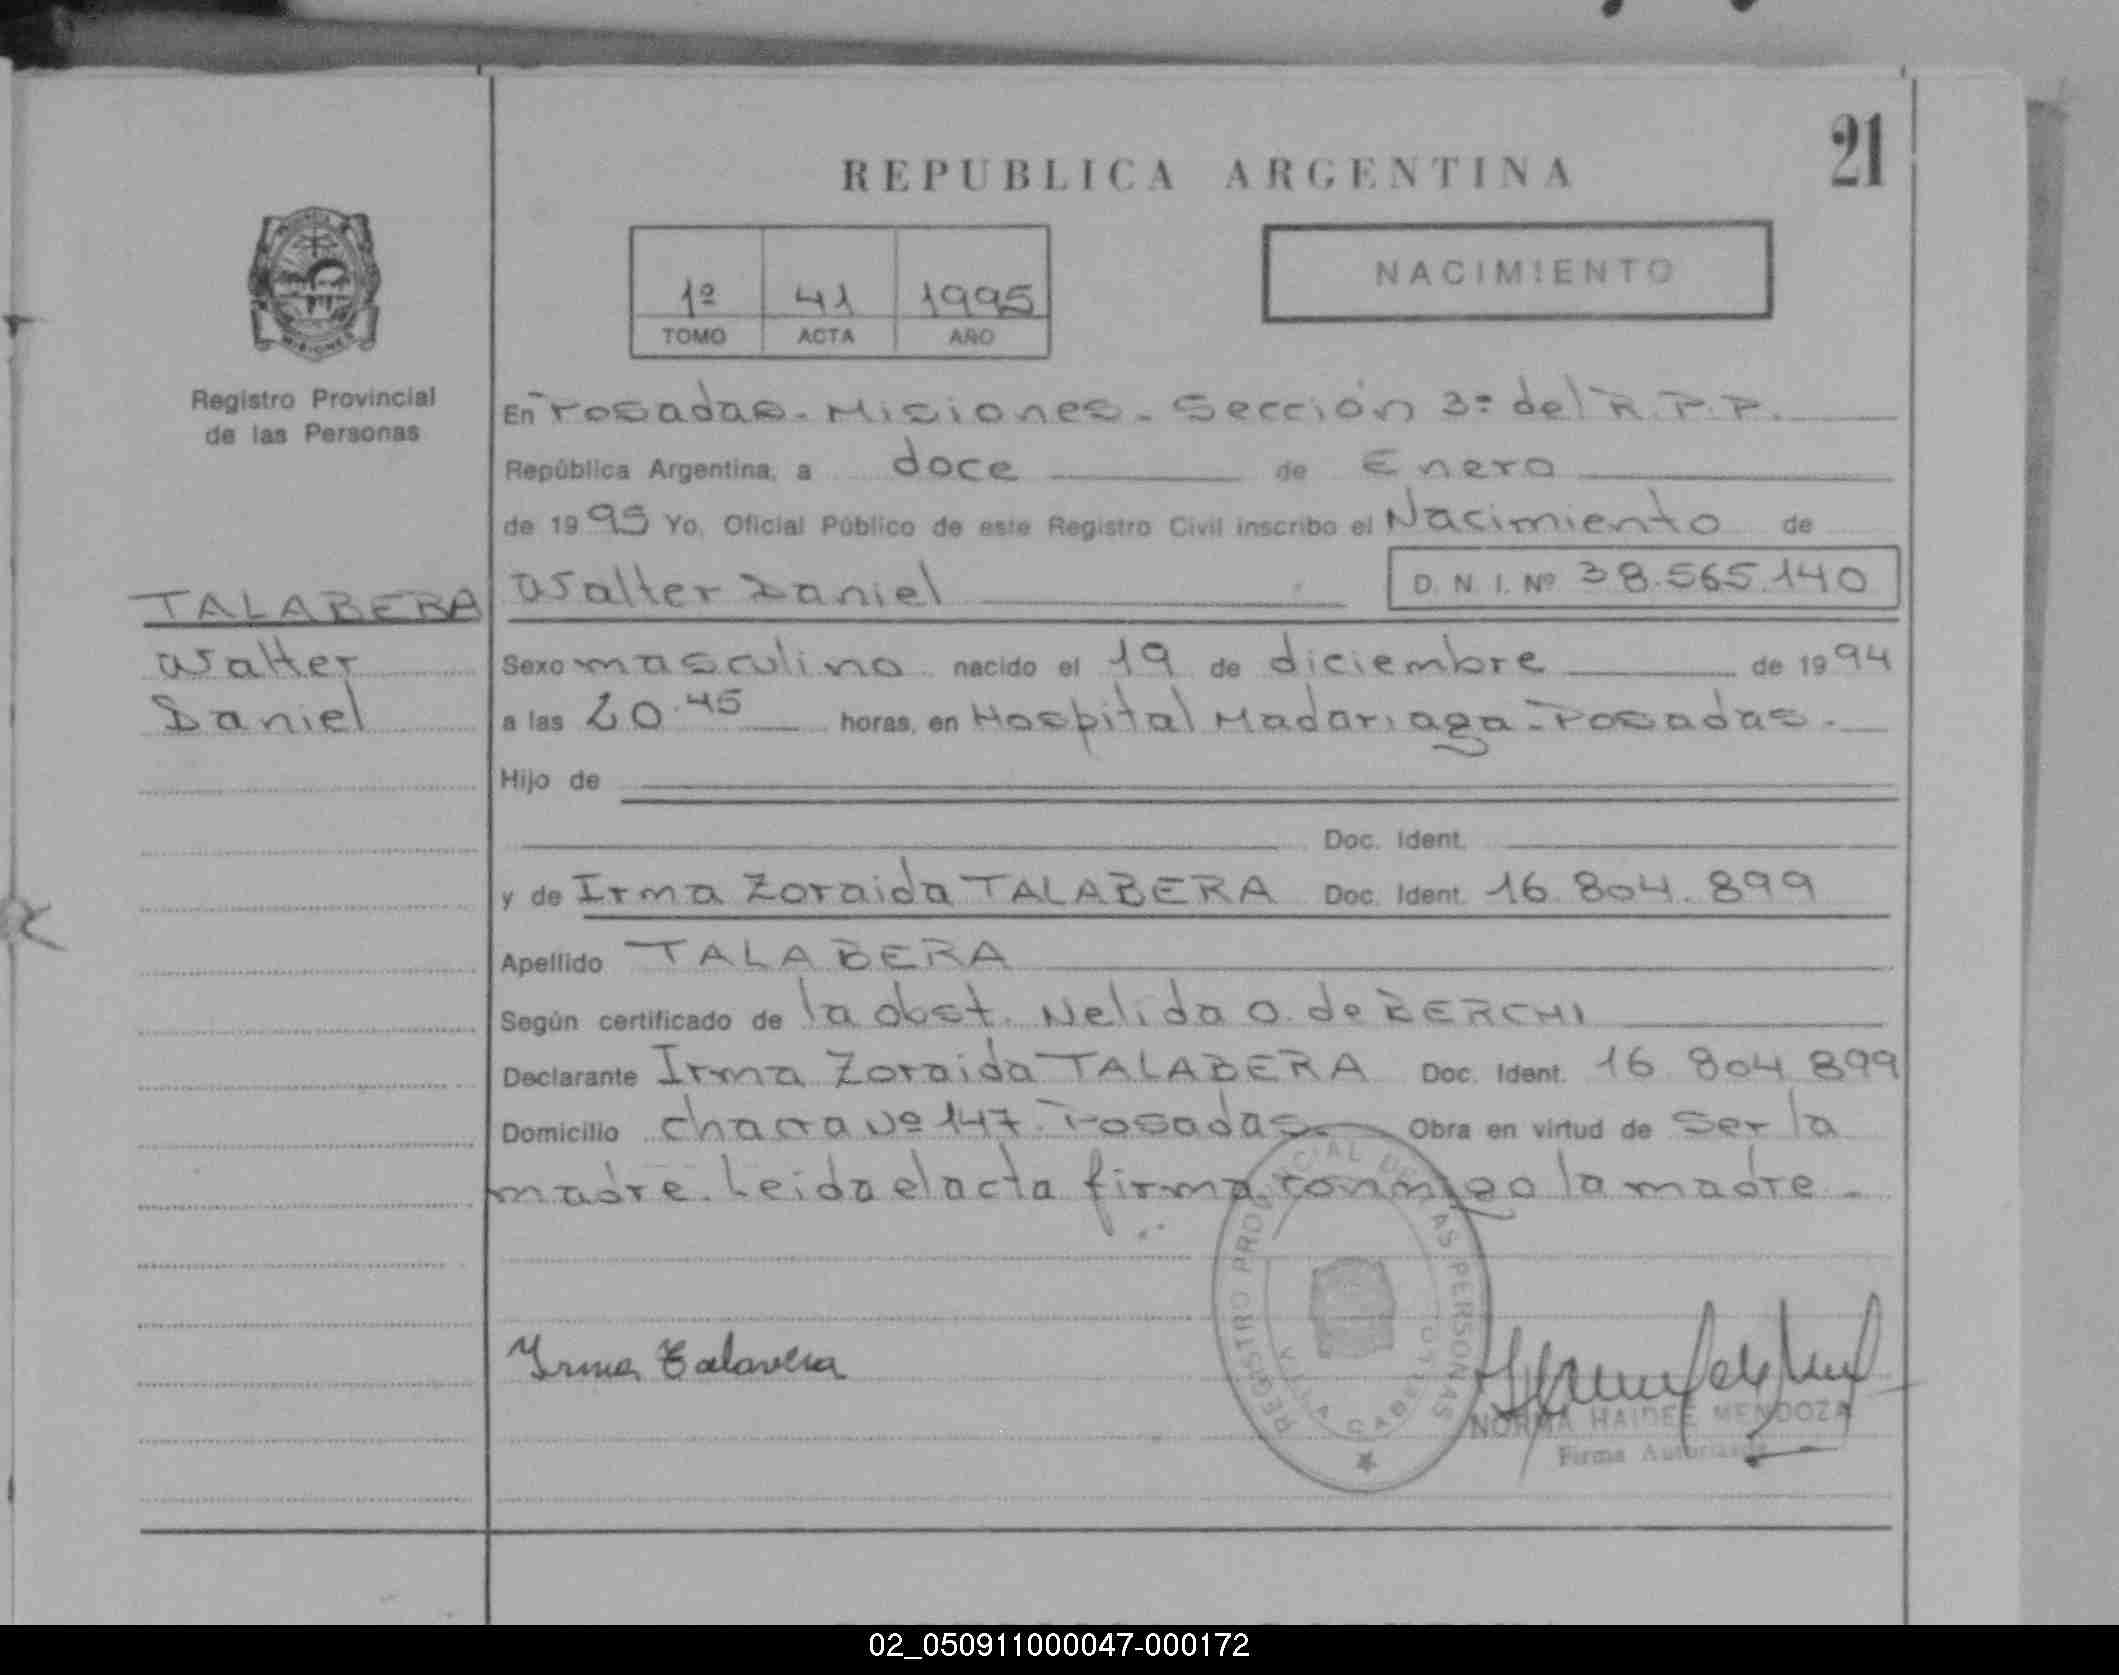 21
REPUBLICA ARGENTINA
PROVINCIA
MISIONES
1º 41 1995
TOMO ACTA AÑO
NACIMIENTO
Registro Provincial
de las Personas
TALABERA
Walter
Daniel
En Posadas - Misiones - Sección 3ª del R.P.P.
República Argentina, a doce de Enero
de 1995 Yo, Oficial Público de este Registro Civil inscribo el Nacimiento de
Walter Daniel D. N. I. Nº 38.565.140
Sexo masculino nacido el 19 de diciembre de 1994
a las 20.45 horas, en Hospital Madariaga - Posadas.
Hijo de
Doc. Ident.
y de Irma Zoraida TALABERA Doc. Ident. 16.804.899
Apellido TALABERA
Según certificado de la obst. Nelida O. de BERCHI
Declarante Irma Zoraida TALABERA Doc. Ident. 16 804 899
Domicilio chacra Nº 147. Posadas. Obra en virtud de ser la
madre. Leida el acta firma conmigo la madre.
REGISTRO PROVINCIAL DE LAS PERSONAS
VILLA CABELLO
Irma Talavera
NORMA HAIDEE MENDOZA
Firma Autorizada
02_050911000047-000172